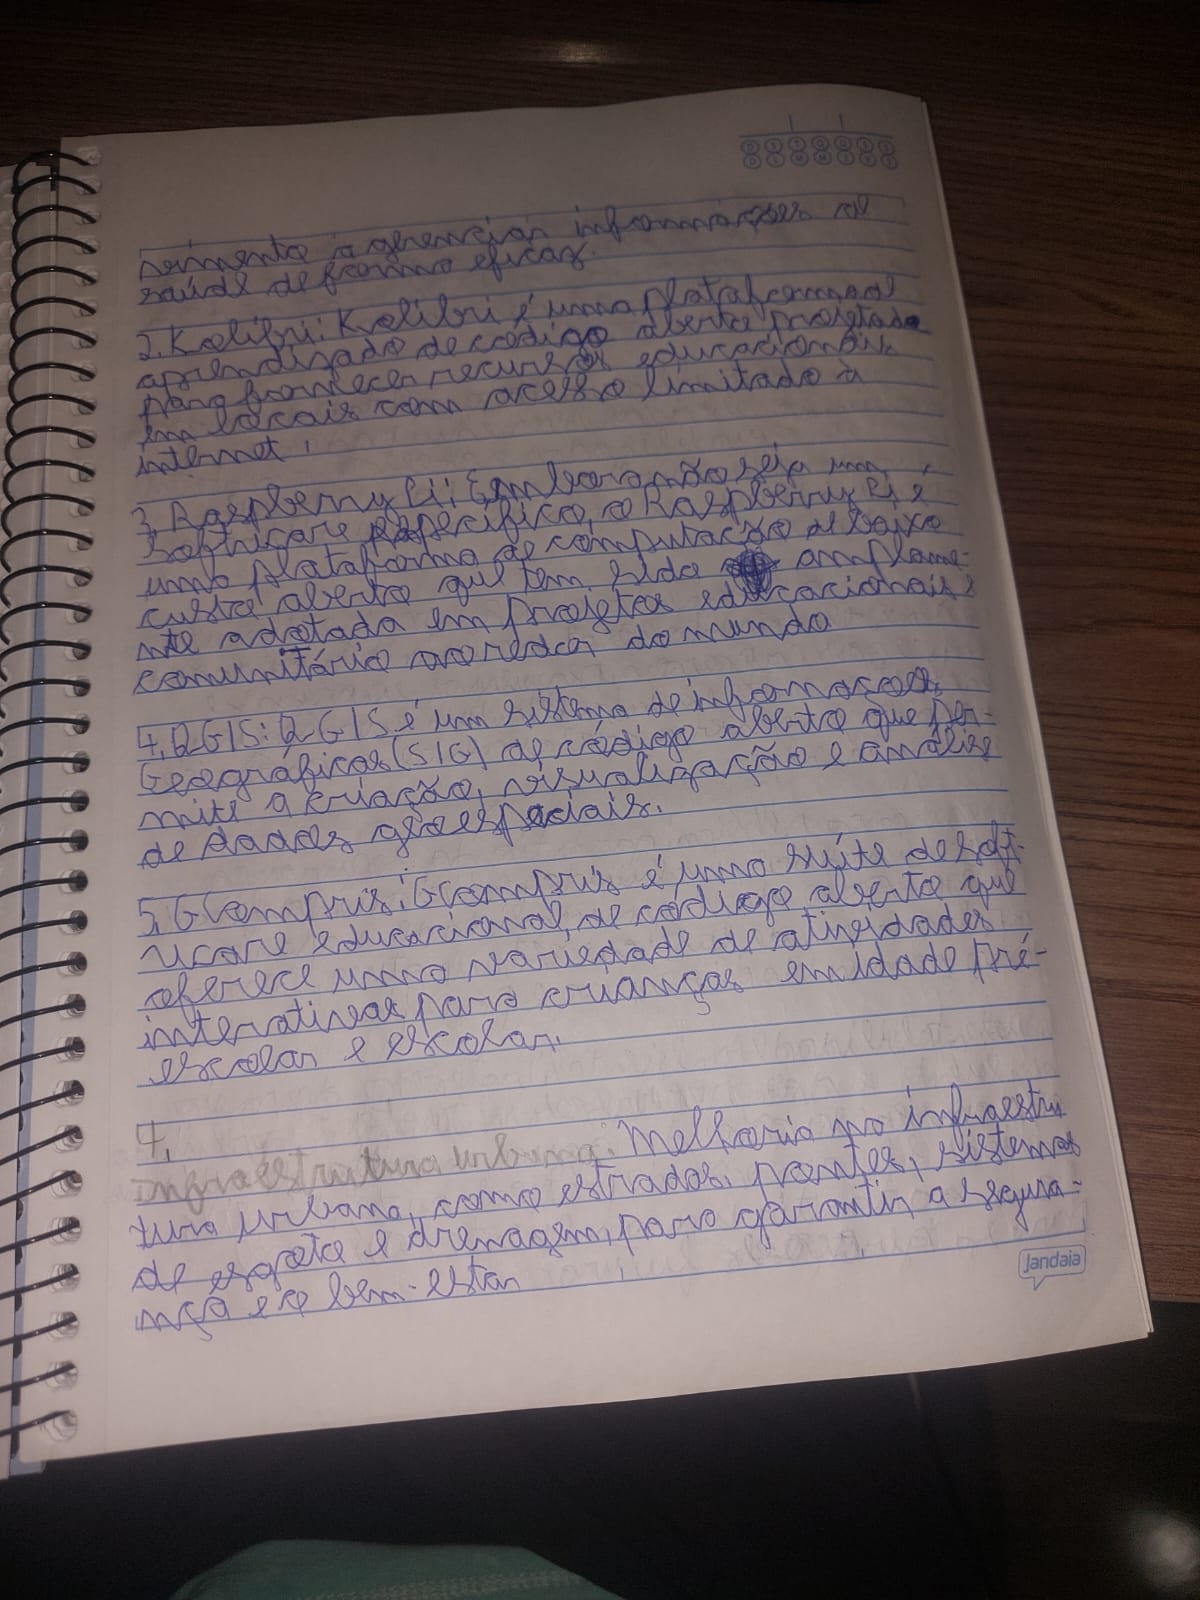 vimento a gerenciar informações de
saúde de forma eficaz.
2. Kolibri: Kolibri é uma plataforma de
aprendizado de código aberto projetado
para fornecer recursos educacionais
em locais com acesso limitado à
internet.
3. Raspberry Pi: Embora não seja um
software específico, o Raspberry Pi é
uma plataforma de computação de baixo
custo aberto que tem sido amplame-
nte adotada em projetos educacionais e
comunitário ao redor do mundo
4. QGIS: QGIS é um sistema de informações
Geográficas (SIG) de código aberto que per-
mite a criação, visualização e análise
de dados geoespaciais.
5. GCompris: GCompris é uma suíte de soft-
ware educacional de código aberto que
oferece uma variedade de atividades
interativas para crianças em idade pré-
escolar e escolar.
4.
Melhoria na infraestru
tura urbana, como estradas, pontes, sistemas
de esgoto e drenagem, para garantir a segura-
nça e o bem-estar
Jandaia